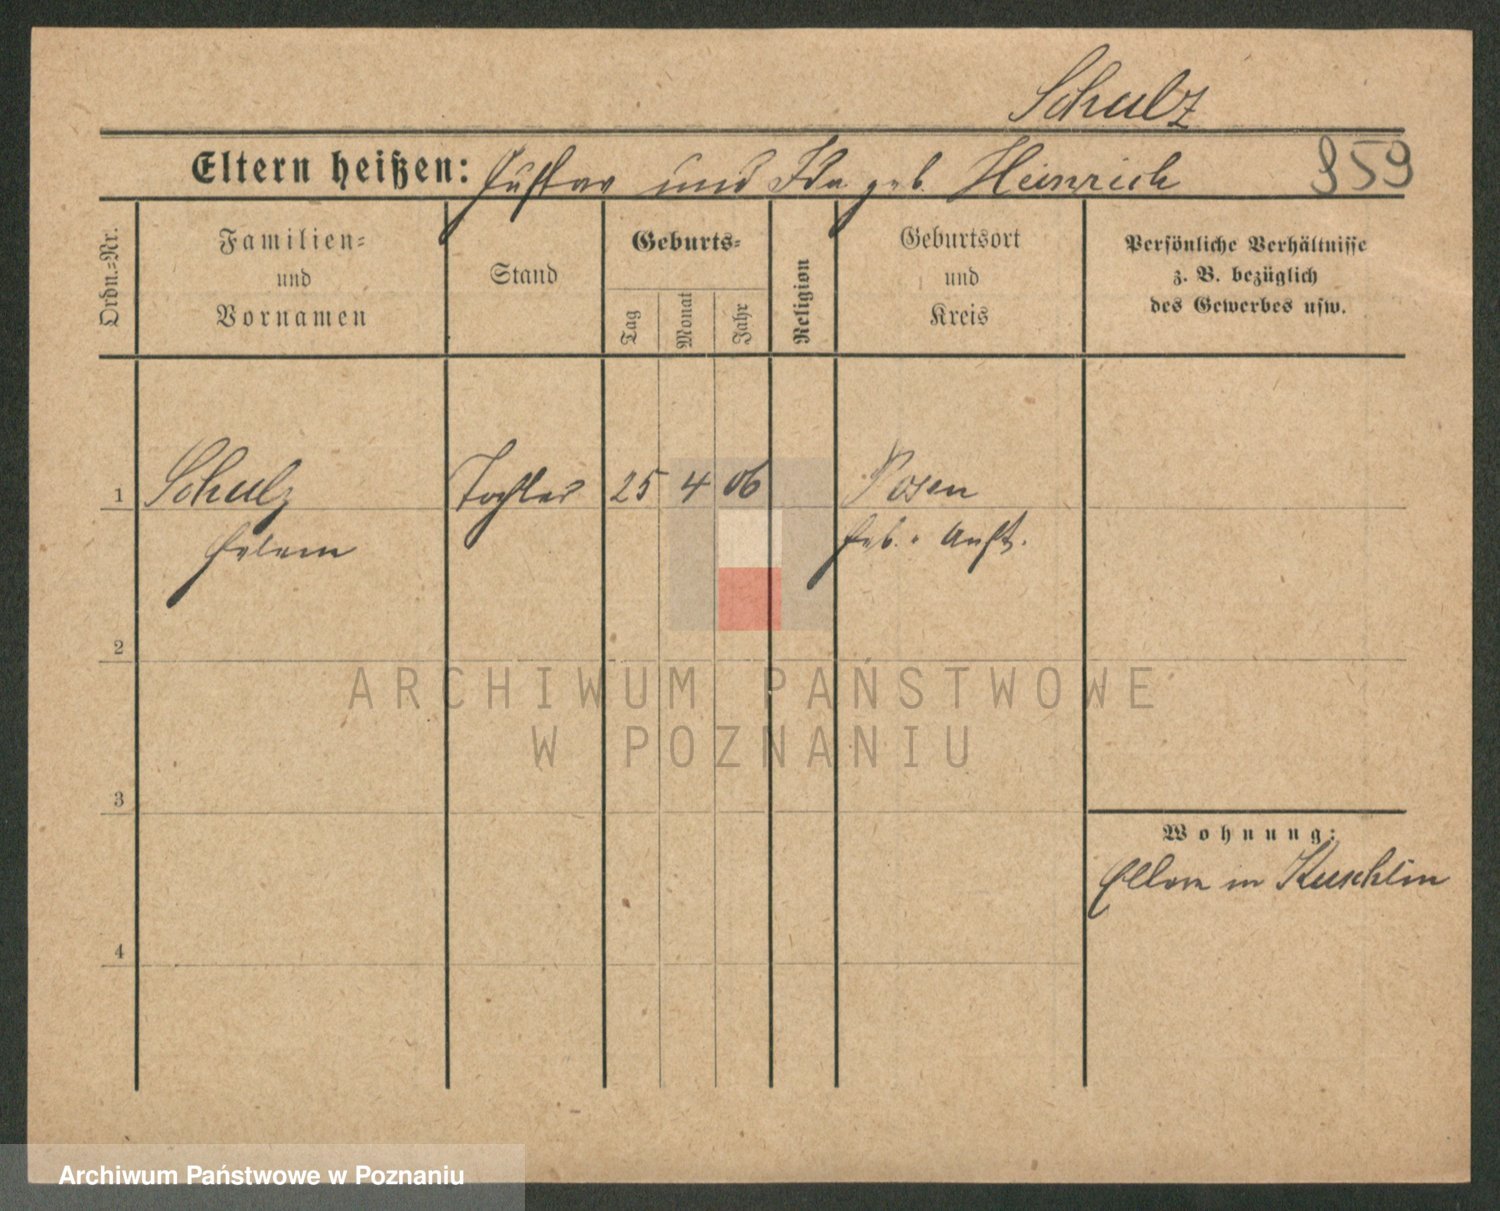 Schulz
Eltern heißen: Gustav und Ida geb. Heinrich
959
Ordn.=Nr.
Familien=
und
Vornamen
Stand
Geburts=
Tag
Monat
Jahr
Religion
Geburtsort
und
Kreis
Persönliche Verhältnisse
z. B. bezüglich
des Gewerbes usw.
1 Schulz Tochter 25 4 06 Posen
Geb. Anst.
2
ARCHIWUM PAŃSTWOWE
W POZNANIU
3
Wohnung:
Eltern in Kuschlin
4
Archiwum Państwowe w Poznaniu